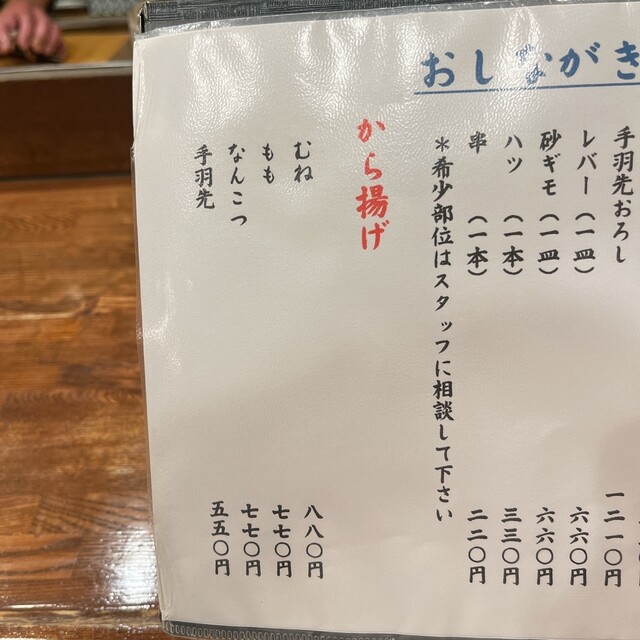 おしながき
手羽先おろし 一二一〇円
レバー（一皿） 六六〇円
砂ギモ（一皿） 六六〇円
ハツ（一本） 三三〇円
串（一本） 二二〇円
＊希少部位はスタッフに相談して下さい
から揚げ
むね 八八〇円
もも 七七〇円
なんこつ 七七〇円
手羽先 五五〇円